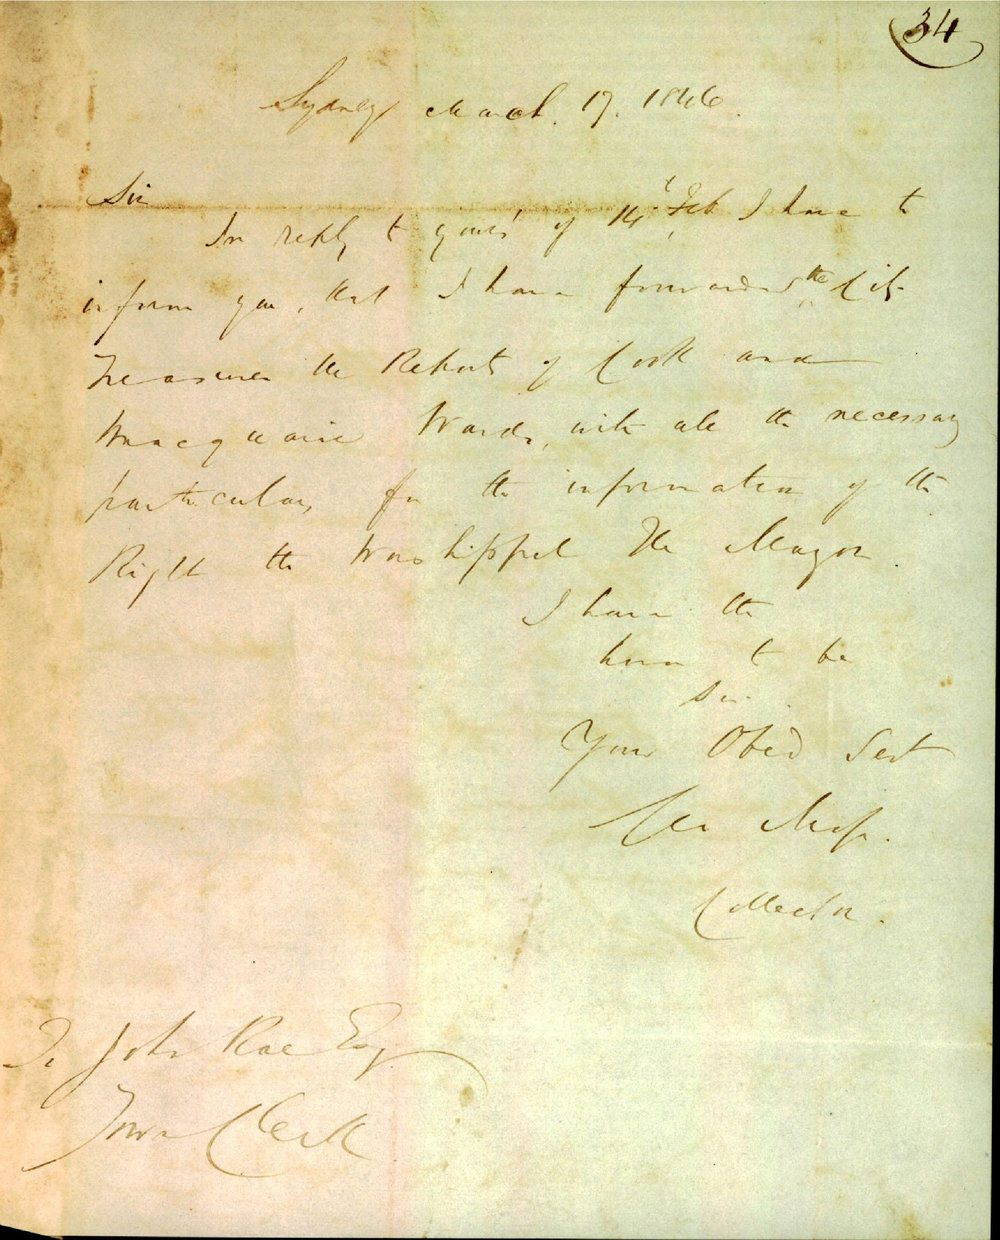 34
Sydney March. 17. 1846.
Sir
In reply to yours of 14t. Feb, I have to
inform you, that I have forwarded the City
Treasurer the Report of Cook and
Macquarie Wards, with all the necessary
particulars, for the information of the
Right the Worshippful The Mayor.
I have the
honor to be
Sir.
Your Obed Sert
Collector.
To John Rae Esq
Town Clerk